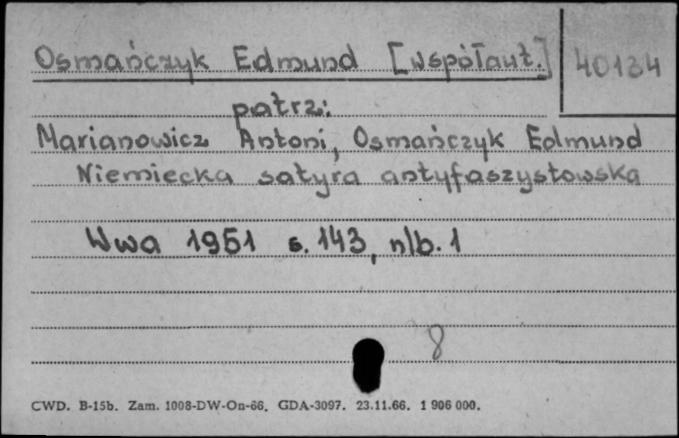 Osmańczyk Edmund [współaut.] 40134
patrz:
Marianowicz Antoni, Osmańczyk Edmund
Niemiecka satyra antyfaszystowska
Wwa 1951 s. 143, nlb. 1
8
CWD. B-15b. Zam. 1008-DW-On-66. GDA-3097. 23.11.66. 1 906 000.